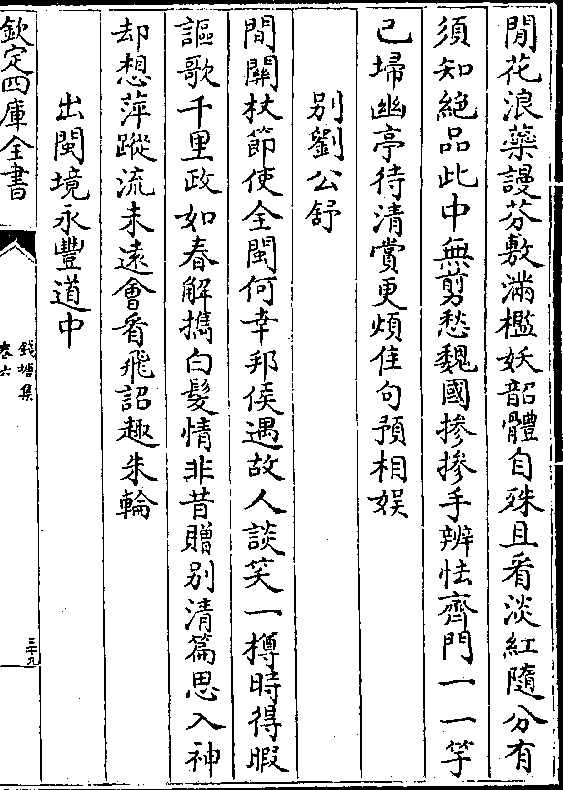 閒花浪藥謾芬敷滿檻妖韶體自殊且看淡紅隨分有
須知絶品此中無剪愁魏國摻摻手辨怯齊門一一竽
已埽幽亭待清賞更煩佳句預相娱
别劉公舒
間關杖節使全閩何幸邦侯遇故人談笑一樽時得暇
謳歌千里政如春解攜白髮情非昔贈别清篇思入神
却想萍蹤流未遠㑹看飛詔趣朱輪
出閩境永豐道中
欽定四庫全書
錢塘集
卷六
三十九